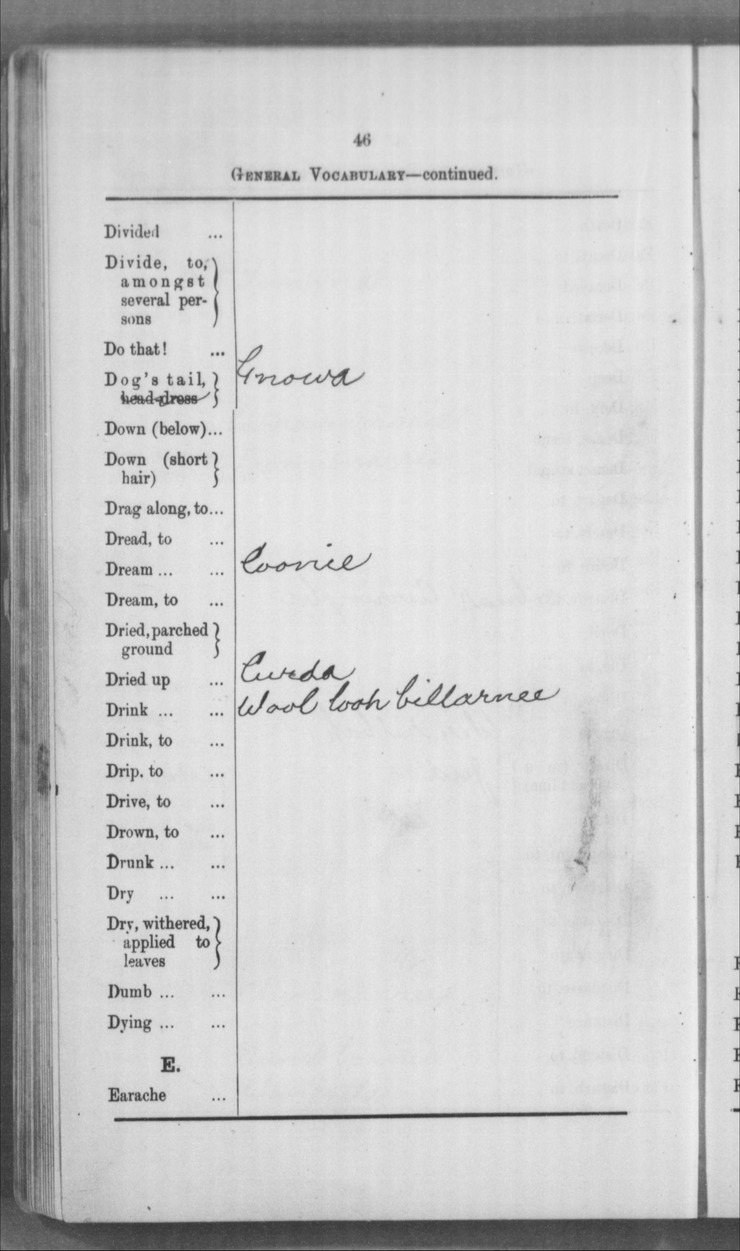 46
GENERAL VOCABULARY—continued.
Divided ...
Divide, to,
amongst
several per-
sons
Do that! ...
Dog's tail, Gnowa
head-dress
Down (below)...
Down (short
hair)
Drag along, to...
Dread, to ...
Dream ... ... Coonie
Dream, to ...
Dried, parched
ground
Dried up ... Curda
Drink ... ... Wool looh billarnee
Drink, to ...
Drip, to ...
Drive, to ...
Drown, to ...
Drunk ... ...
Dry ... ...
Dry, withered,
applied to
leaves
Dumb ... ...
Dying ... ...
E.
Earache ...